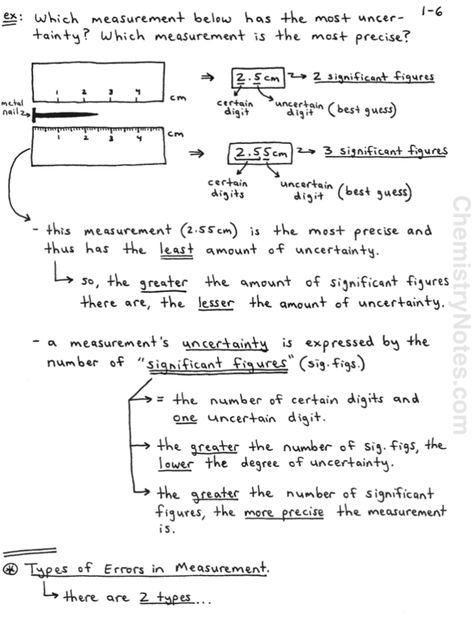 1-6
ex: Which measurement below has the most uncer-
tainty? Which measurement is the most precise?
1 2 3 4 cm
⇒ 2.5cm → 2 significant figures
certain digit uncertain digit (best guess)
metal nail
1 2 3 4 cm
⇒ 2.55cm → 3 significant figures
certain digits uncertain digit (best guess)
- this measurement (2.55cm) is the most precise and
thus has the least amount of uncertainty.
↳ so, the greater the amount of significant figures
there are, the lesser the amount of uncertainty.
- a measurement's uncertainty is expressed by the
number of "significant figures" (sig. figs.)
→ = the number of certain digits and
one uncertain digit.
→ the greater the number of sig. figs, the
lower the degree of uncertainty.
→ the greater the number of significant
figures, the more precise the measurement
is.
Types of Errors in Measurement.
↳ there are 2 types...
ChemistryNotes.com